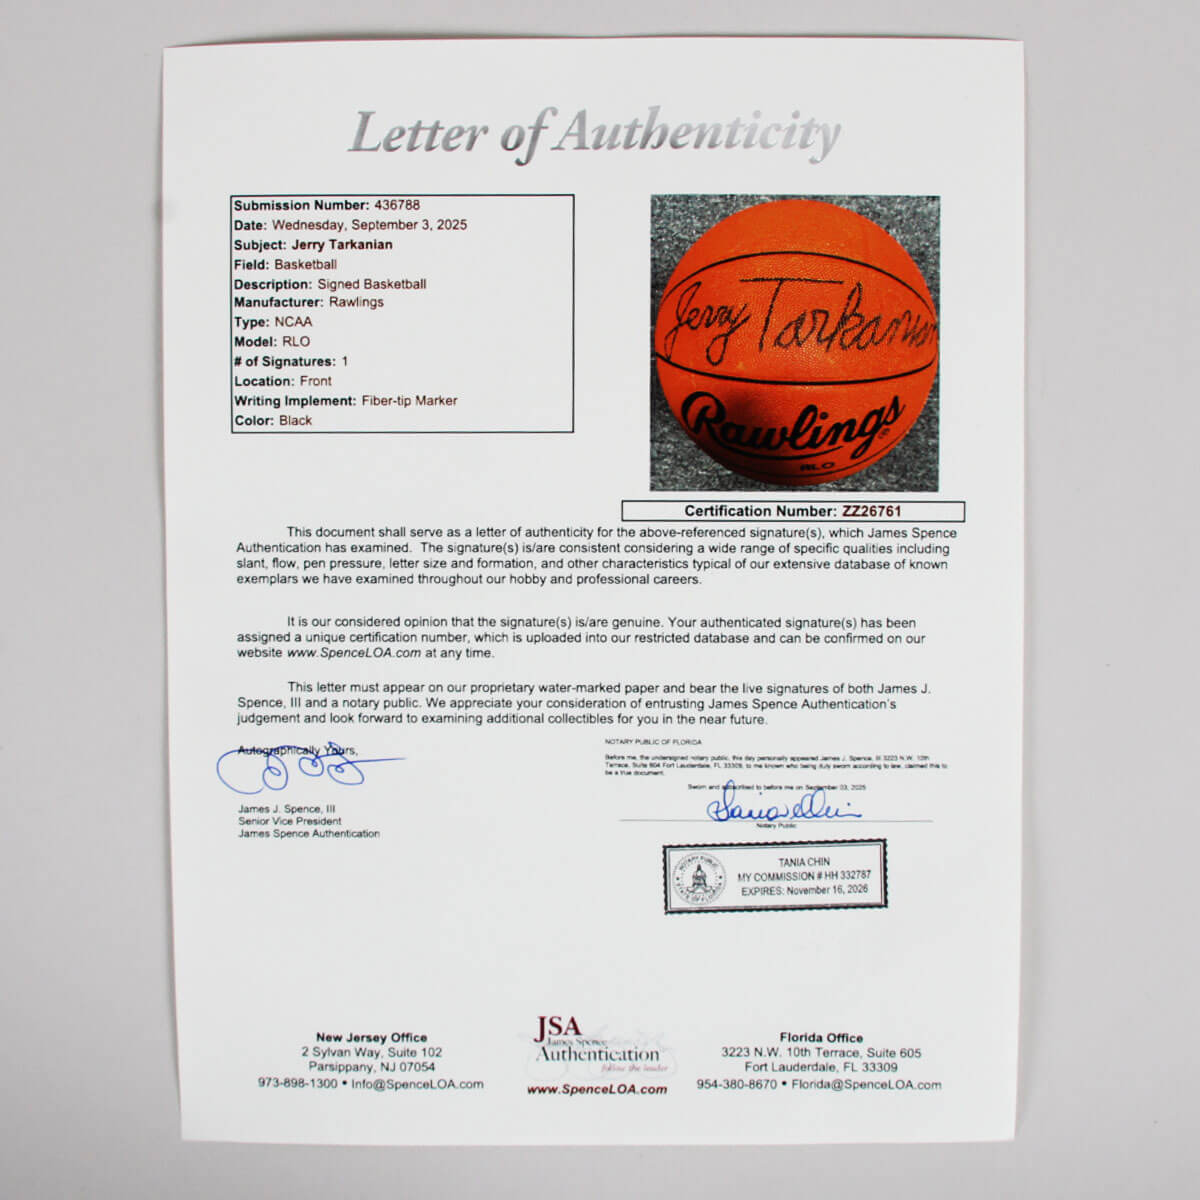 Letter of Authenticity
Submission Number: 436788
Date: Wednesday, September 3, 2025
Subject: Jerry Tarkanian
Field: Basketball
Description: Signed Basketball
Manufacturer: Rawlings
Type: NCAA
Model: RLO
# of Signatures: 1
Location: Front
Writing Implement: Fiber-tip Marker
Color: Black
Jerry Tarkanian
Rawlings®
RLO
Certification Number: ZZ26761
This document shall serve as a letter of authenticity for the above-referenced signature(s), which James Spence
Authentication has examined. The signature(s) is/are consistent considering a wide range of specific qualities including
slant, flow, pen pressure, letter size and formation, and other characteristics typical of our extensive database of known
exemplars we have examined throughout our hobby and professional careers.
It is our considered opinion that the signature(s) is/are genuine. Your authenticated signature(s) has been
assigned a unique certification number, which is uploaded into our restricted database and can be confirmed on our
website www.SpenceLOA.com at any time.
This letter must appear on our proprietary water-marked paper and bear the live signatures of both James J.
Spence, III and a notary public. We appreciate your consideration of entrusting James Spence Authentication's
judgement and look forward to examining additional collectibles for you in the near future.
Autographically Yours,
James J. Spence, III
Senior Vice President
James Spence Authentication
NOTARY PUBLIC OF FLORIDA
Before me, the undersigned notary public, this day personally appeared James J. Spence, III 3223 N.W. 10th
Terrace, Suite 604 Fort Lauderdale, FL 33309, to me known who being duly sworn according to law, claimed this to
be a true document.
Sworn and subscribed to before me on September 03, 2025
Notary Public
NOTARY PUBLIC
STATE OF FLORIDA
TANIA CHIN
MY COMMISSION # HH 332787
EXPIRES: November 16, 2026
New Jersey Office
2 Sylvan Way, Suite 102
Parsippany, NJ 07054
973-898-1300 • Info@SpenceLOA.com
JSA
James Spence
Authentication
follow the leader
www.SpenceLOA.com
Florida Office
3223 N.W. 10th Terrace, Suite 605
Fort Lauderdale, FL 33309
954-380-8670 • Florida@SpenceLOA.com